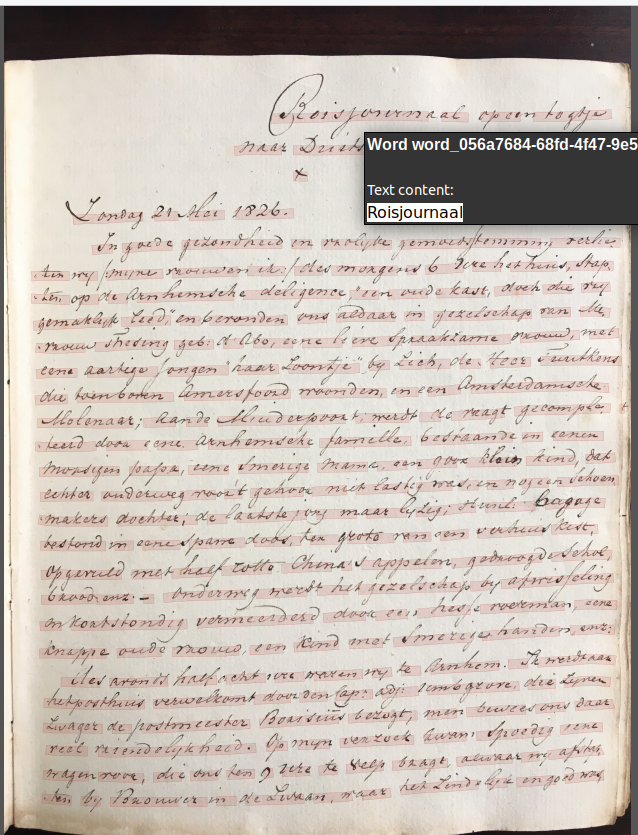 Roisjournaal op een togtje
naar Duits
Word word_056a7684-68fd-4f47-9e5
Text content:
Roisjournaal
x
Zondag 21 Mei 1826.
In goede gezondheid en vrolijke gemoedsstemming verlie-
ten wij /mijne vrouw en ik:/ des morgens 6 Ure het huis, stap-
ten op de Arnhemsche deligence, "een oude kast, doch die vrij
gemaklijk reed," en bevonden ons aldaar in gezelschap van Me
vrouw geb: d'Abo, eene lieve spraakzame vrouw, met
eene aartige jongen "haar Zoontje" by Zich, de Heer
die toen boven Amersfoord woonden, en een Amsterdamsche
Molenaar; aande Muiderpoort, werdt de vragt gecomple
teerd door eene Arnhemsche famielle, bestaande in eenen
morsigen papa, eene smerige mama, een goor klein kind, dat
echter onderweg voor 't gehoor niet lastig was, en nog een schoen
makers dochter; de laatste vrij maar Bagage
bestond in eene spane doos, ter groote van een verhuis kist,
opgevuld met half rotte China's appelen, gedroogde schol,
brood enz. — onderweg werdt het gezelschap by afwisseling
en kortstondig vermeerderd door een voerman, eene
knappe oude vrouw, een kind met smerige handen, enz:
des avonds half acht ure waren wij te Arnhem. Ik werdt aan
het posthuis verwelkomt door den die Zijnen
Zwager de postmeester bezogt, men bewees ons daar
veel vriendelijkheid. Op mijn verzoek kwam spoedig eene
wagen voor, die ons ten 9 Ure te Velp bragt, alwaar wij afstap
ten by Brouwer in de Zwaan, waar het Zindelijk en goed was